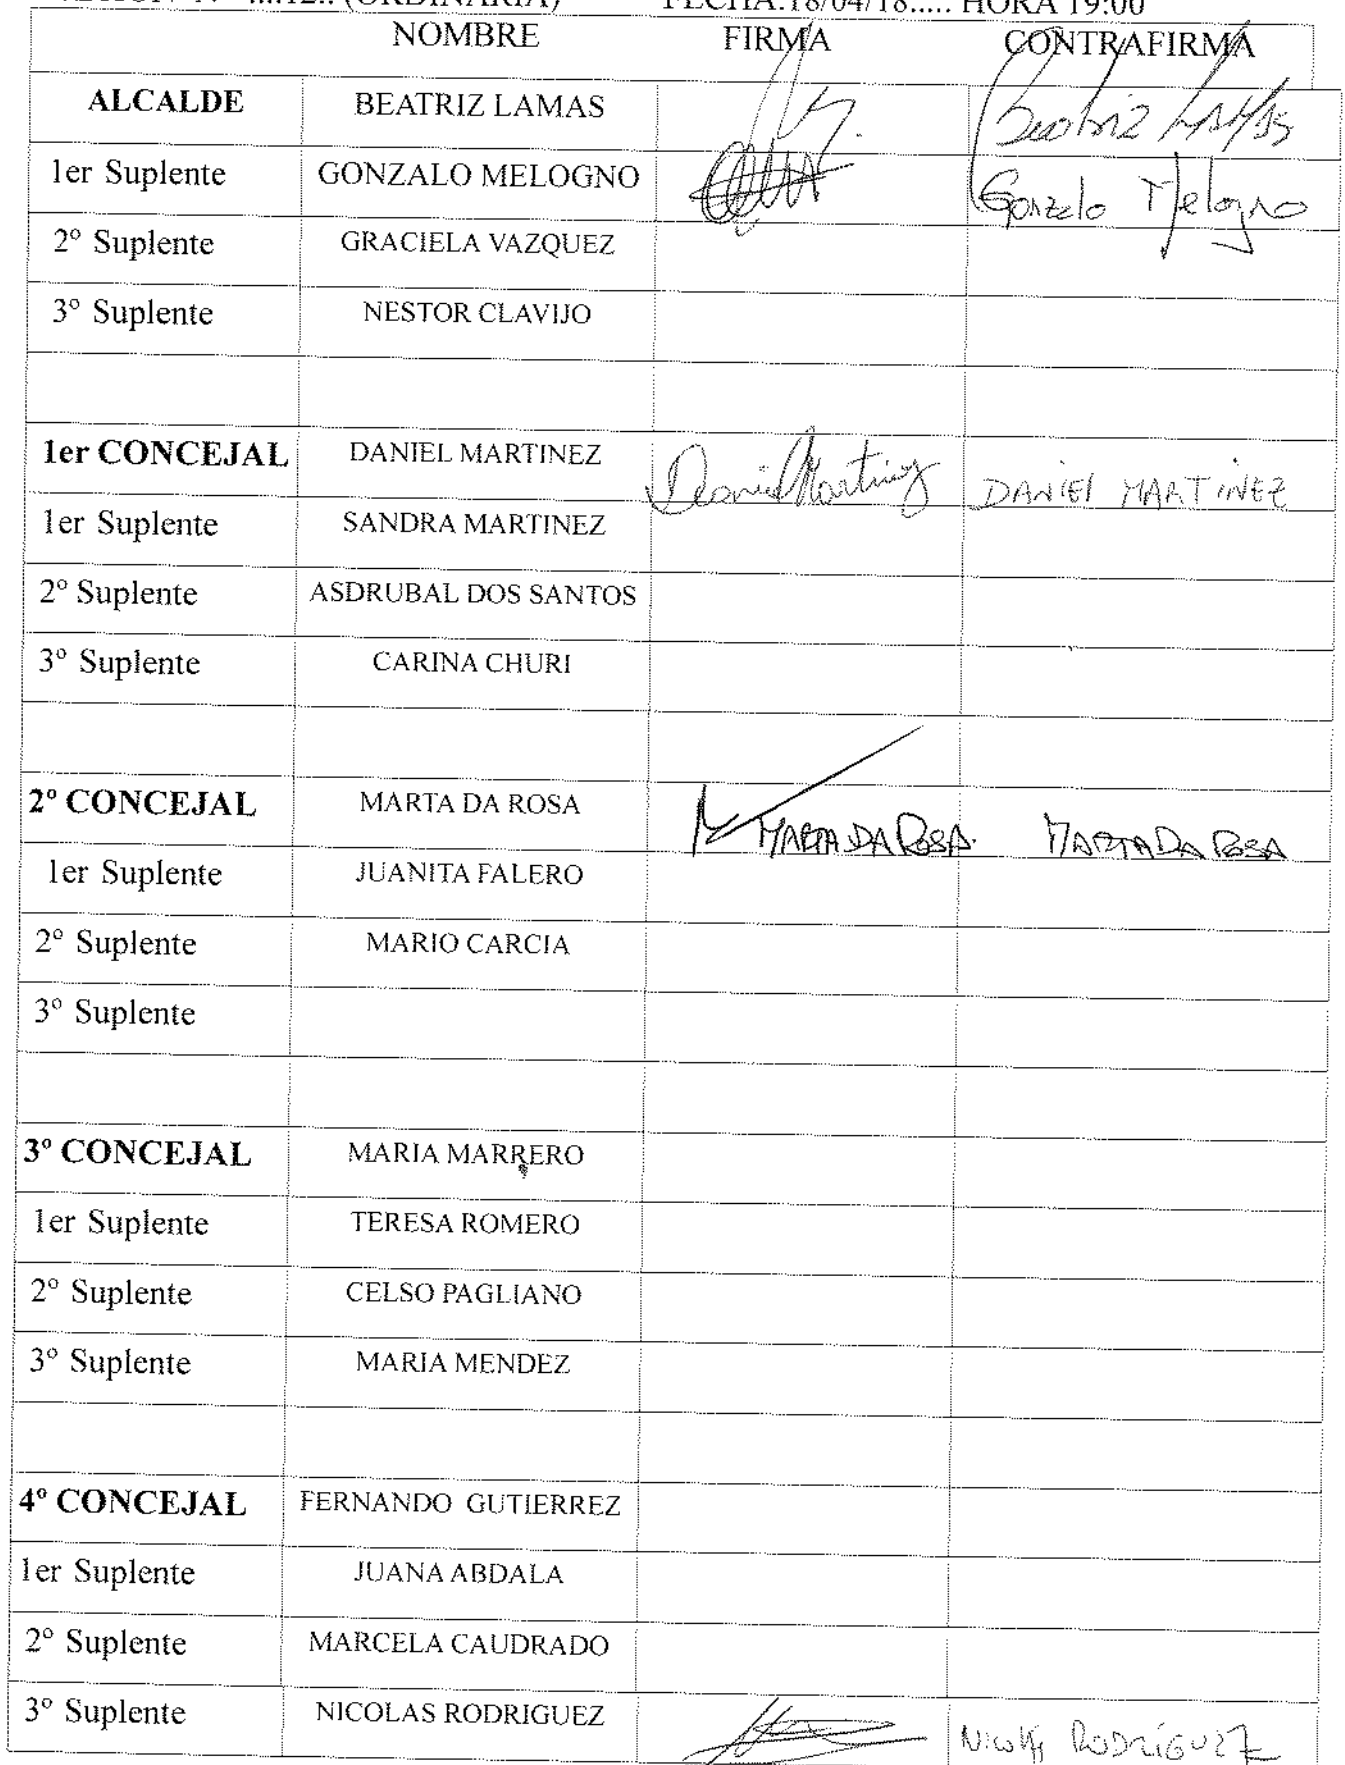 Nº ....12.. (ORDINARIA) FECHA:18/04/18..... HORA 19:00
NOMBRE FIRMA CONTRAFIRMA
ALCALDE BEATRIZ LAMAS Beatriz LAMAS
1er Suplente GONZALO MELOGNO Gonzalo Melogno
2º Suplente GRACIELA VAZQUEZ
3º Suplente NESTOR CLAVIJO
1er CONCEJAL DANIEL MARTINEZ Daniel Martinez DANIEl MARTINEZ
1er Suplente SANDRA MARTINEZ
2º Suplente ASDRUBAL DOS SANTOS
3º Suplente CARINA CHURI
2º CONCEJAL MARTA DA ROSA MARTA DA ROSA. MARTA DA ROSA
1er Suplente JUANITA FALERO
2º Suplente MARIO CARCIA
3º Suplente
3º CONCEJAL MARIA MARRERO
1er Suplente TERESA ROMERO
2º Suplente CELSO PAGLIANO
3º Suplente MARIA MENDEZ
4º CONCEJAL FERNANDO GUTIERREZ
1er Suplente JUANA ABDALA
2º Suplente MARCELA CAUDRADO
3º Suplente NICOLAS RODRIGUEZ Nicolás RODRÍGUEZ